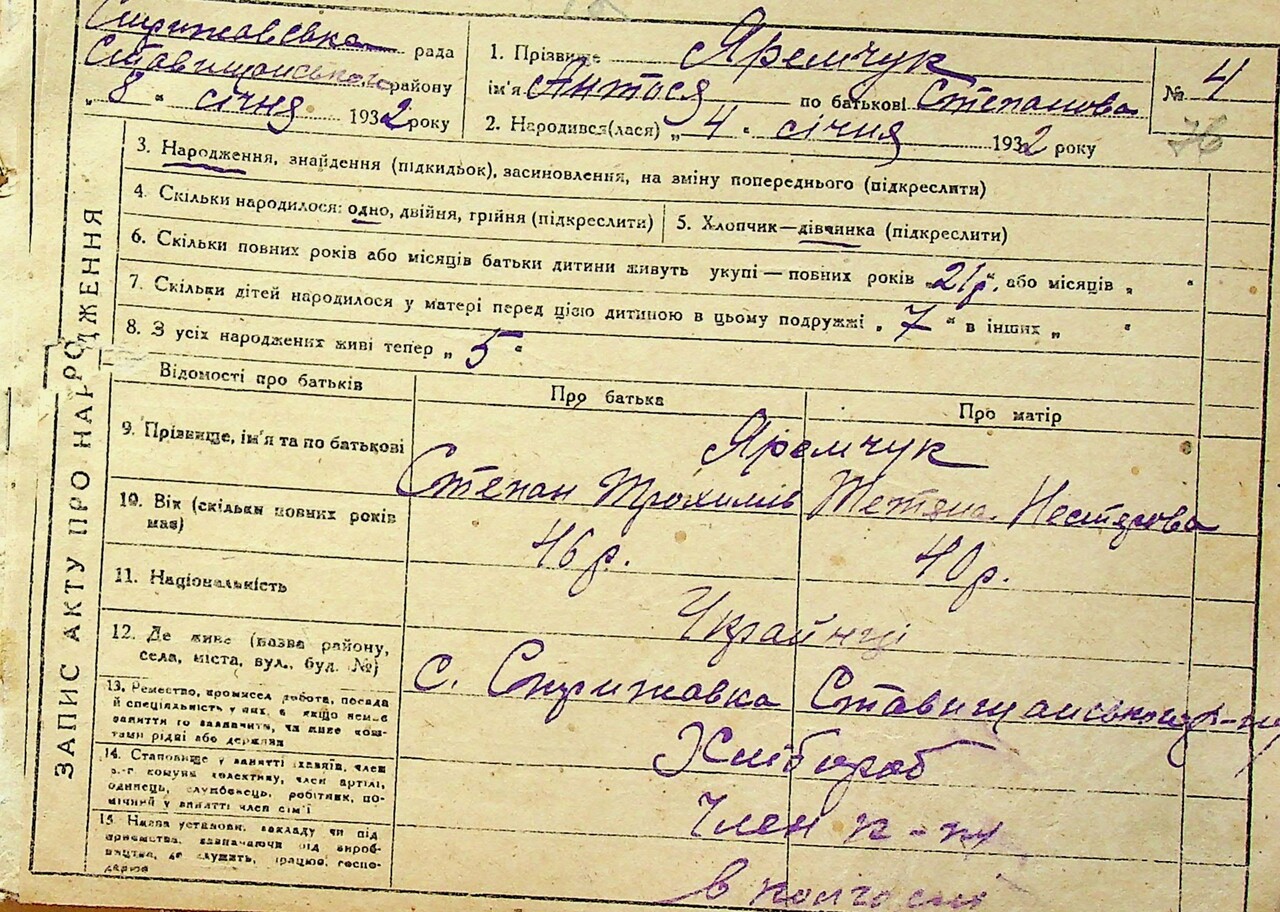 Стрижавська рада
Ставищанського району
„ 8 “ січня 1932 року
1. Прізвище Яремчук
ім'я Антося по батькові Степанова
2. Народився(лася) „ 4 “ січня 1932 року
№ 4
76
ЗАПИС АКТУ ПРО НАРОДЖЕННЯ
3. Народження, знайдення (підкидьок), засиновлення, на зміну попереднього (підкреслити)
4. Скільки народилося: одно, двійня, трійня (підкреслити)
5. Хлопчик—дівчинка (підкреслити)
6. Скільки повних років або місяців батьки дитини живуть укупі — повних років „ 21р “, або місяців „ “
7. Скільки дітей народилося у матері перед цією дитиною в цьому подружжі „ 7 “ в інших „ “
8. З усіх народжених живі тепер „ 5 “
Відомості про батьків
Про батька
Про матір
9. Прізвище, ім'я та по батькові
Яремчук
Степан Трохимів
Тетяна Нестерова
10. Вік (скільки повних років має)
46 р.
40 р.
11. Національність
Українці
12. Де живе (назва району,
села, міста, вул., буд. №)
с. Стрижавка Ставищанського р-ну
13. Ремество, промисел робота, посада
й спеціальність у них, а якщо немає
заняття то зазначити, чи живе кош-
тами рідні або держави
Хлібороб
14. Становище у занятті (хазяїн, член
с.-г комуни колективу, член артілі,
одинець, службовець, робітник, по-
мічний у занятті член сім'ї
Член
15. Назва установи, закладу чи під
приємства, зазначаючи рід вироб-
ництва, де служить, працює, госпо-
дарює
в колгоспі